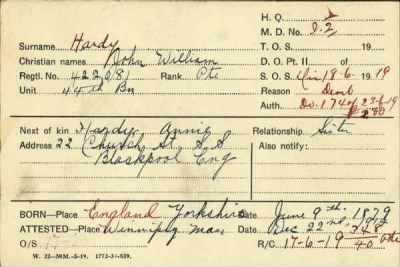 H. Q.
Surname Hardy M. D. No. D.2
Christian names John William T. O. S. 19
Regtl. No. 422081 Rank Pte D. O. Pt. II of
Unit 44th Bn S. O. S. 18-6-19 19
Reason Demb
Auth. D.O. 174 of 23-6-19
Next of kin Hardy Annie Relationship Sister
Address 22 Church St. S.S Also notify:
Blackpool Eng
BORN—Place England Yorkshire Date June 9th. 1879
ATTESTED—Place Winnipeg Man Date Dec 22nd.
O/S R/C 17-6-19
W. 22—50M.-3-19. 1772-39-839.